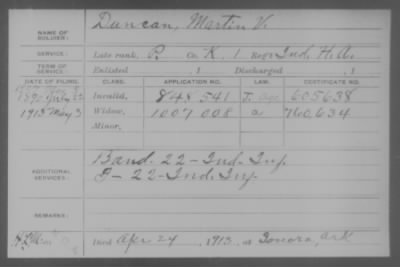 Duncan, Martin V.
NAME OF SOLDIER:
SERVICE: Late rank, P. Co. K, 1 Reg't Ind. H. A.
TERM OF SERVICE: Enlisted , 1 Discharged , 1
DATE OF FILING. CLASS. APPLICATION NO. LAW. CERTIFICATE NO.
1890 July 22 Invalid, 848 541 605638
1913 May 3 Widow, 1007 008 a 760,634
Minor,
ADDITIONAL SERVICES: Band. 22 - Ind. Inf.
22 - Ind. Inf.
REMARKS:
Died Apr 24, 1913, at Sonora, Ark